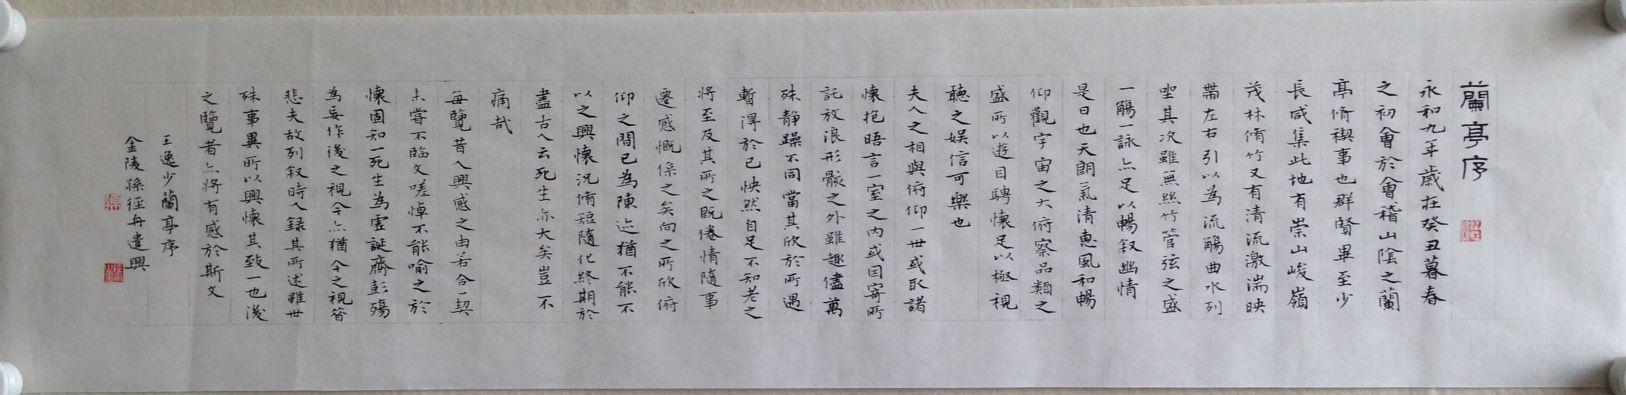 蘭亭序
永和九年歲在癸丑暮春
之初會於會稽山陰之蘭
亭脩禊事也群賢畢至少
長咸集此地有崇山峻嶺
茂林脩竹又有清流激湍映
帶左右引以為流觴曲水列
坐其次雖無絲竹管弦之盛
一觴一詠亦足以暢叙幽情
是日也天朗氣清惠風和暢
仰觀宇宙之大俯察品類之
盛所以遊目騁懷足以極視
聽之娛信可樂也
夫人之相與俯仰一世或取諸
懷抱晤言一室之內或因寄所
託放浪形骸之外雖趣儘萬
殊靜躁不同當其欣於所遇
暫得於己怏然自足不知老之
將至及其所之既倦情隨事
遷感慨係之矣向之所欣俯
仰之間已為陳迹猶不能不
以之興懷況脩短隨化終期於
盡古人云死生亦大矣豈不
痛哉
每覽昔人興感之由若合一契
未嘗不臨文嗟悼不能喻之於
懷固知一死生為虛誕齊彭殤
為妄作後之視今亦猶今之視昔
悲夫故列叙時人錄其所述雖世
殊事異所以興懷其致一也後
之覽者亦將有感於斯文
王逸少蘭亭序
金陵孫徑舟遣興